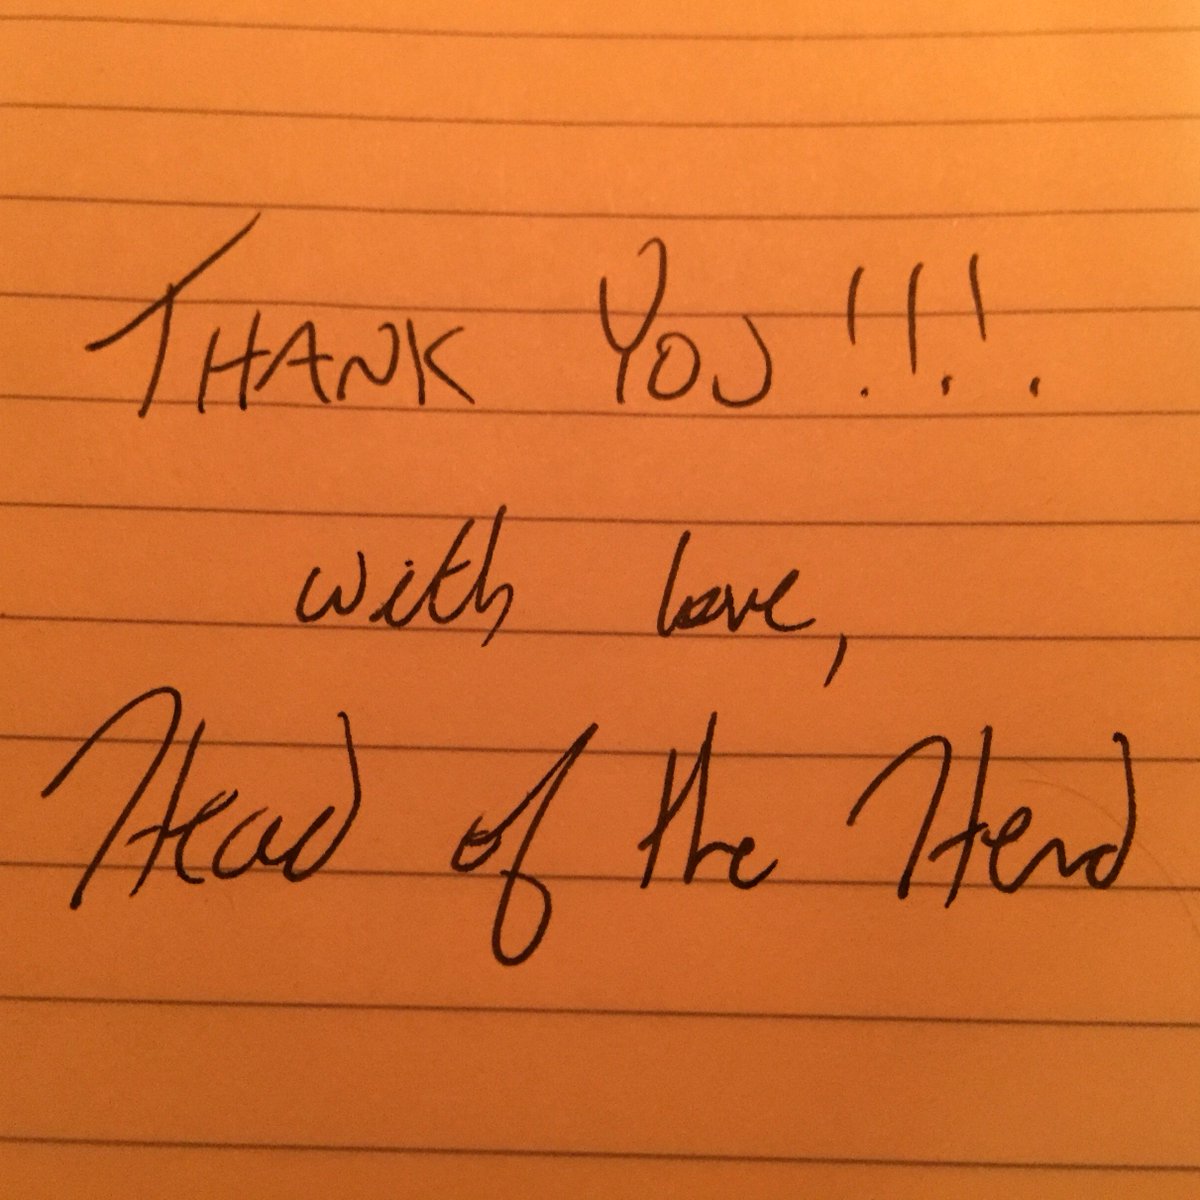 THANK YOU!!!
with love,
Head of the Herd